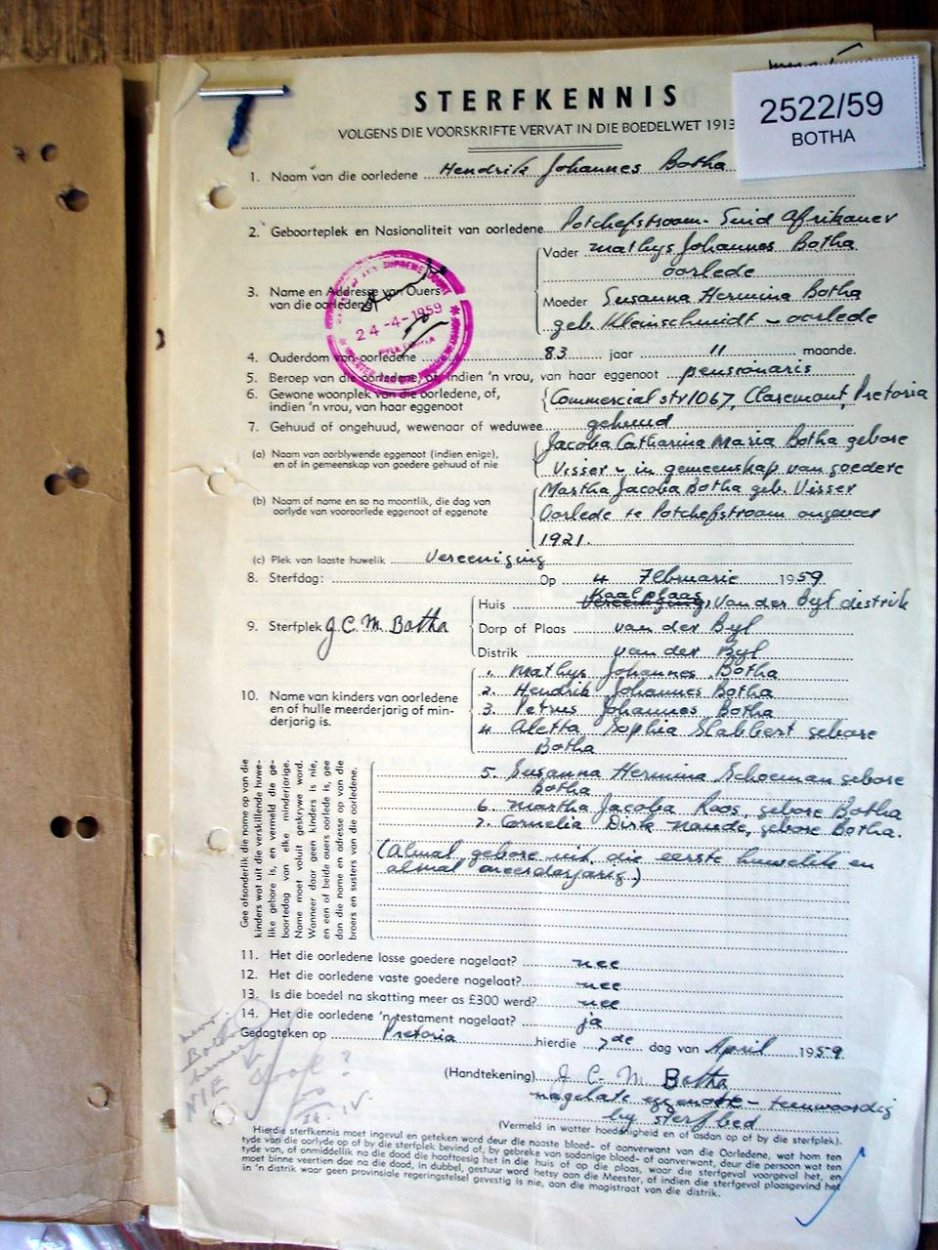 STERFKENNIS
2522/59
BOTHA
VOLGENS DIE VOORSKRIFTE VERVAT IN DIE BOEDELWET 1913
1. Naam van die oorledene Hendrik Johannes Botha
2. Geboorteplek en Nasionaliteit van oorledene Potchefstroom. Suid Afrikaner
3. Name en Addresse van Ouers van die oorledene
Vader Mathys Johannes Botha
oorlede
Moeder Susanna Hermina Botha
geb. Kleinschmidt – oorlede
24-4-1959
4. Ouderdom van oorledene 83 jaar 11 maande.
5. Beroep van die oorledene, of, indien 'n vrou, van haar eggenoot pensionaris
6. Gewone woonplek van die oorledene, of,
indien 'n vrou, van haar eggenoot
Commercial str 1067, Claremont, Pretoria
7. Gehuud of ongehuud, wewenaar of weduwee gehuud
(a) Naam van oorblywende eggenoot (indien enige),
en of in gemeenskap van goedere gehuud of nie
Jacoba Catharina Maria Botha gebore
Visser – in gemeenskap van goedere
(b) Naam of name en so na moontlik, die dag van
oorlyde van vooroorlede eggenoot of eggenote
Martha Jacoba Botha geb. Visser
Oorlede te Potchefstroom ongeveer
1921.
(c) Plek van laaste huwelik Vereeniging
8. Sterfdag: Op 4 Februarie 1959
9. Sterfplek J. C. M. Botha
Huis Kaalplaas, Van der Byl distrik
Dorp of Plaas van der Byl
Distrik van der Byl
10. Name van kinders van oorledene
en of hulle meerderjarig of min-
derjarig is.
1. Mathys Johannes Botha
2. Hendrik Johannes Botha
3. Petrus Johannes Botha
4 Aletta Sophia Slabbert gebore
Botha
5. Susanna Hermina Schoeman gebore
Botha
6. Martha Jacoba Roos, gebore Botha
7. Cornelia Dirk Naude, gebore Botha.
(Almal gebore uit die eerste huwelik en
almal meerderjarig.)
Gee afsonderlik die name op van die
kinders wat uit die verskillende huwe-
like gebore is, en vermeld die ge-
boortedag van elke minderjarige.
Name moet voluit geskrywe word.
Wanneer daar geen kinders is nie,
en een of beide ouers oorlede is, gee
dan die name en adresse op van die
broers en susters van die oorledene.
11. Het die oorledene losse goedere nagelaat? nee
12. Het die oorledene vaste goedere nagelaat? nee
13. Is die boedel na skatting meer as £300 werd? nee
14. Het die oorledene 'n testament nagelaat? ja
Gedagteken op Pretoria hierdie 7de dag van April 1959
(Handtekening) J. C. M. Botha
nagelate eggenote – teenwoordig
by sterfbed
(Vermeld in watter hoedanigheid en of asdan op of by die sterfplek).
Hierdie sterfkennis moet ingevul en geteken word deur die naaste bloed- of aanverwant van die Oorledene, wat hom ten
tyde van die oorlyde op of by die sterfplek bevind of, by gebreke van sodanige bloed- of aanverwant, deur die persoon wat ten
tyde van, of onmiddelik na die dood die hooftoesig het in die huis of op die plaas, waar die sterfgeval voorgeval het, en
moet binne veertien dae na die dood, in dubbel, gestuur word hetsy aan die Meester, of indien die sterfgeval plaasgevind het
in 'n distrik waar geen provinsiale regeringstelsel gevestig is nie, aan die magistraat van die distrik.